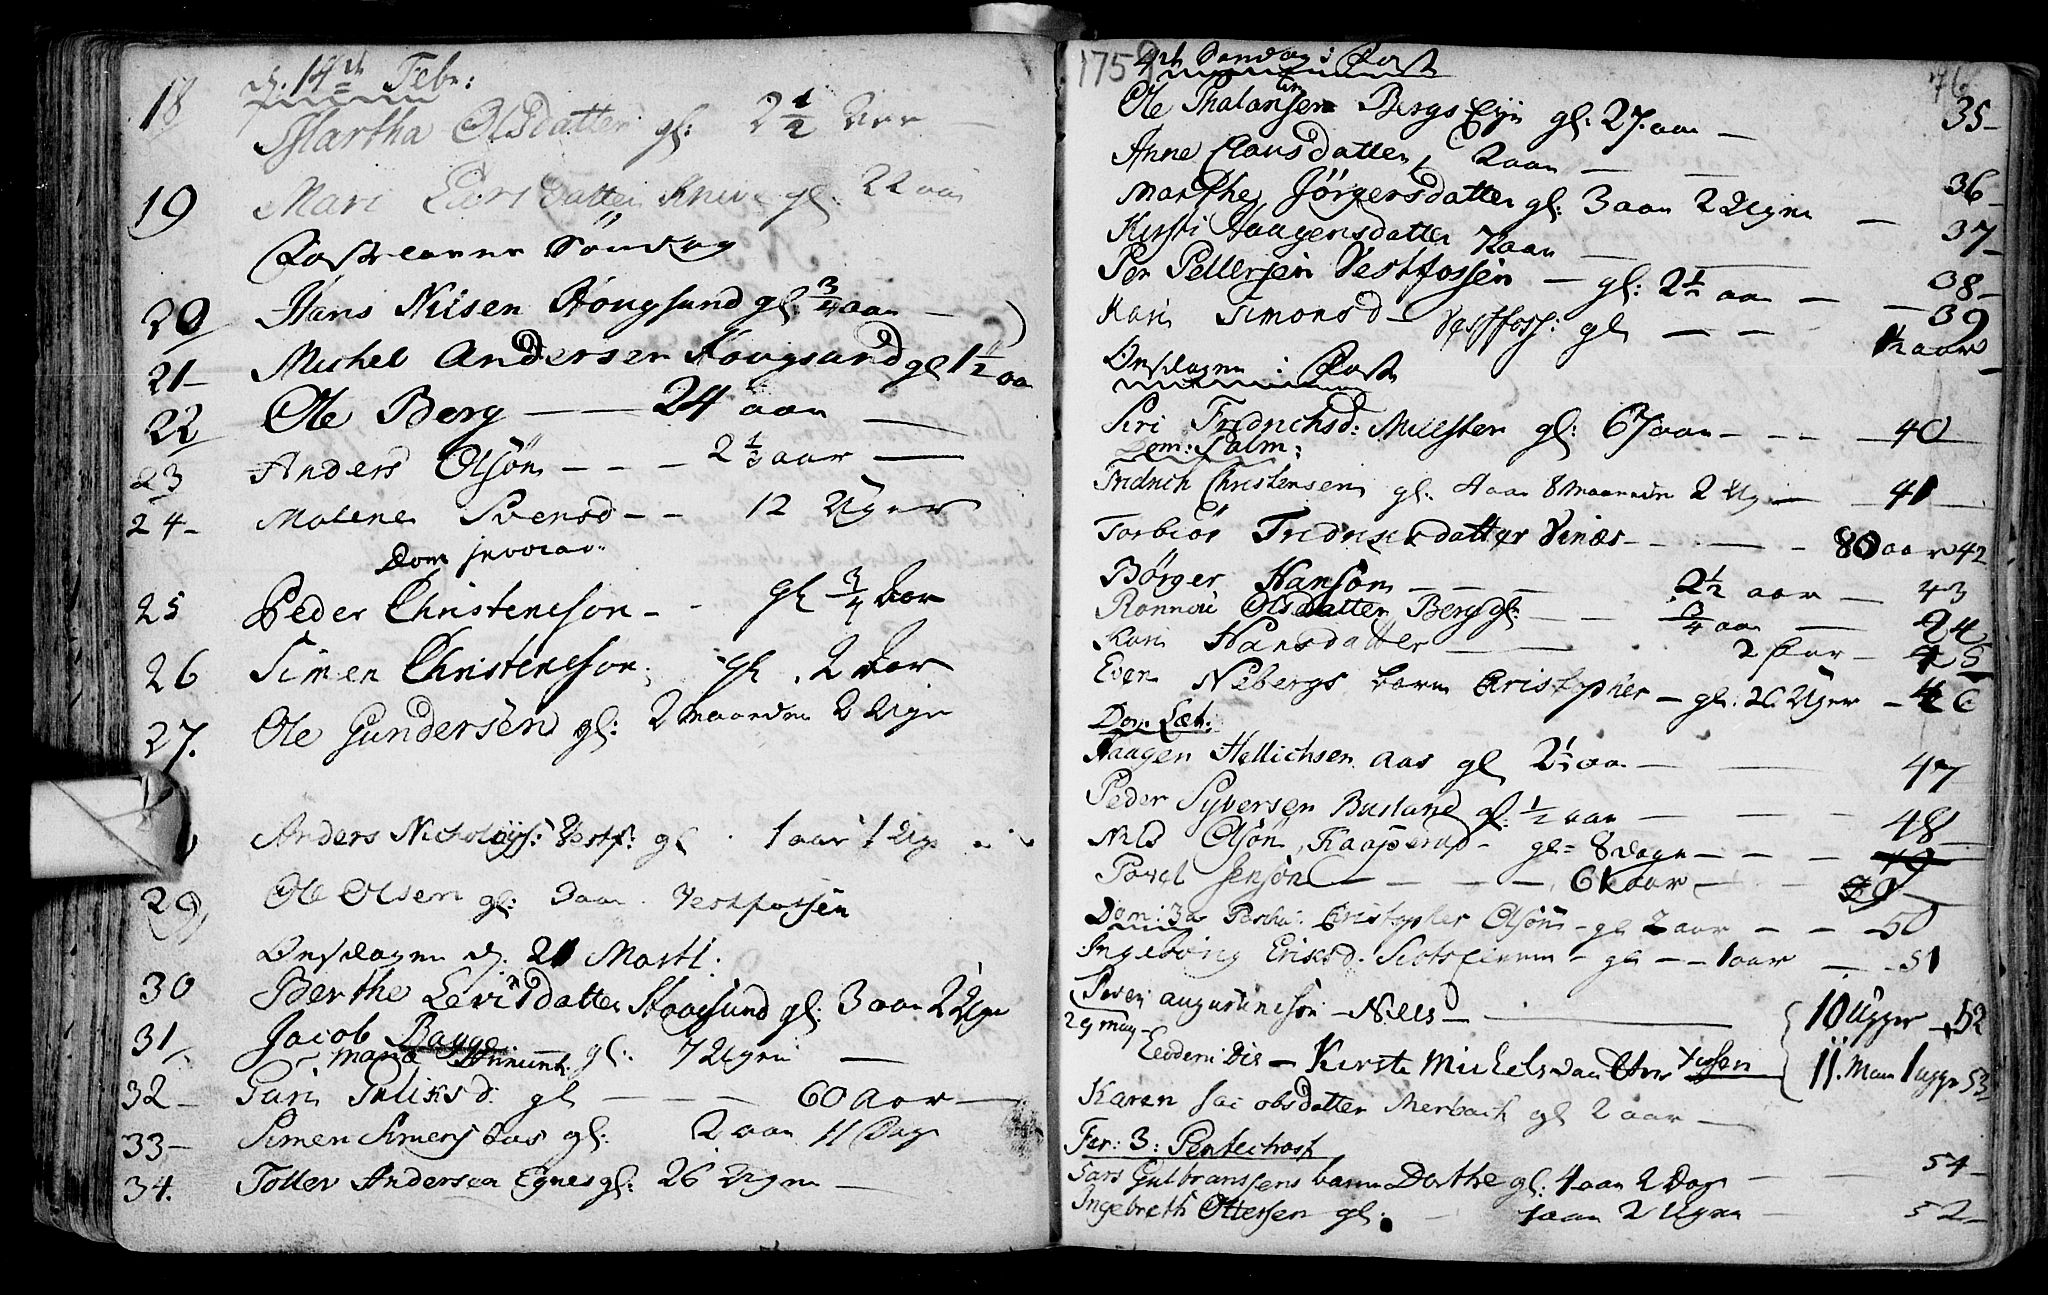 d. 14de Febr:
18 Martha Olsdatter gl: 2 1/2 aar —
19 Mari Larsdatter gl: 22 aar
Fastelavns Söndag
20 Hans Nilsen Hougsund gl: 3/4 aar —
21 — Michel Andersen Hougsund gl 1 1/2 aar
22 Ole Berg — — 24 aar —
23 Anders Olsön — — — 2 1/2 aar —
24 — Malene Svensd — — 12 Uger
Dom jnvocav.
25 Peder Christensson — - gl 3/4 aar
26 Simen Christensson gl. 2 aar
27. Ole Gundersen gl: 2 maaneder 2 Uger
Anders Nicholays: Vestf: gl 1 aar 1 Uge
29 Ole Olsen gl: 3 aar Vestfossen
Onsdagen d. 21 Marti:
30 Berthe Levisdatter Hougsund gl: 3 aar 2 Uger
31 Jacob Bagge
gl: 7 Ugeri —
32 — gl — — — 60 Aar —
33 — Simen Simens Aas gl: 2 aar 11 Dage
34. Toller Andersen Egnes gl: 26 Uger —
1759 4de Söndag i Faste 76
Ole Bergs Eye gl: 27. aar — 35 —
Anne Clausdatter 2 aar —
Marthe Jörgensdatter gl: 3 aar 2 Uger — 36 —
Kirsti Haagensdatter aar — 37 —
Per Pettersen Vestfossen — gl: 2 1/2 aar — 38 —
Kari Simonsd — Vestfoss: gl — — — 39
1/2 aar
Onsdagen i Faste
Siri Fridrichsd: Millesten gl: 67 aar — — — 40
Dom: Palm:
Fridrich Christensen gl. 4 aar 8 maaneder 2 Uger — 41
Torbiör Fridrichsdatter Vinæs — — — 80 aar 42
Börger Hansön — — — 2 1/2 aar — 43
Ronnou Olsdatter Berg gl: — — 3/4 aar — 24
Kari Hansdatter — — 2 aar — 45
Even Nebergs barn Cristopher — gl: 26 Uger — 46
Dom: Læt:
Haagen Hellichsen Aas gl 2 1/2 aar — — 47
Peder Syversen Busland gl: 1/2 aar — — — 48
Nils Olsön Kaaperud — gl = 8 dage — — — 49
Povel Jensön — — — — 61 aar — — 49
Dom: 3a Pascha: Cristopher Olsön — gl 2 aar — — 50
Ingeborg Eriksd. — gl — — 1 aar — 51
Sören augustinssön — Nills — — 10 Ugger — 52
29 may —
Eodem: Die — Kirste Michelsdatter 11. Maan 1 ugge 53
Karen Jacobsdatter Merbach gl 2 aar —
Fer: 3: Pentechost
Lars Gulbranssens barn Dorthe gl: 1 aar 2 Dage — — 54 —
Ingebreth Ottersen gl: — 1 aar 2 Uger — 52 —